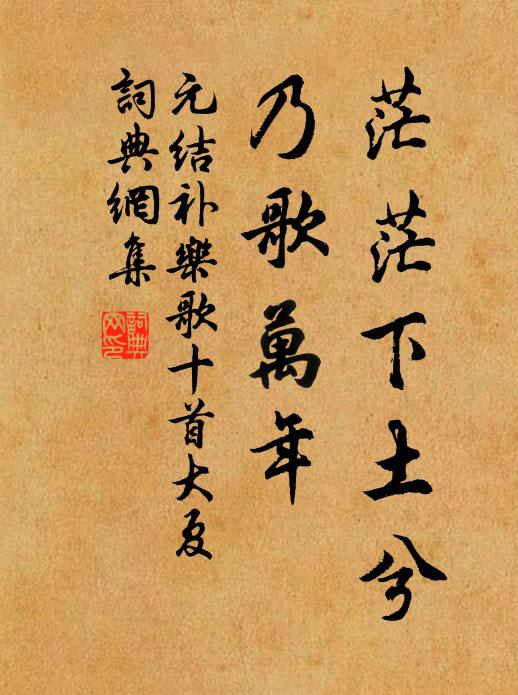 茫茫下土兮
乃歌萬年
元结补樂歌十首大夏
詞典網集
詞典
网印